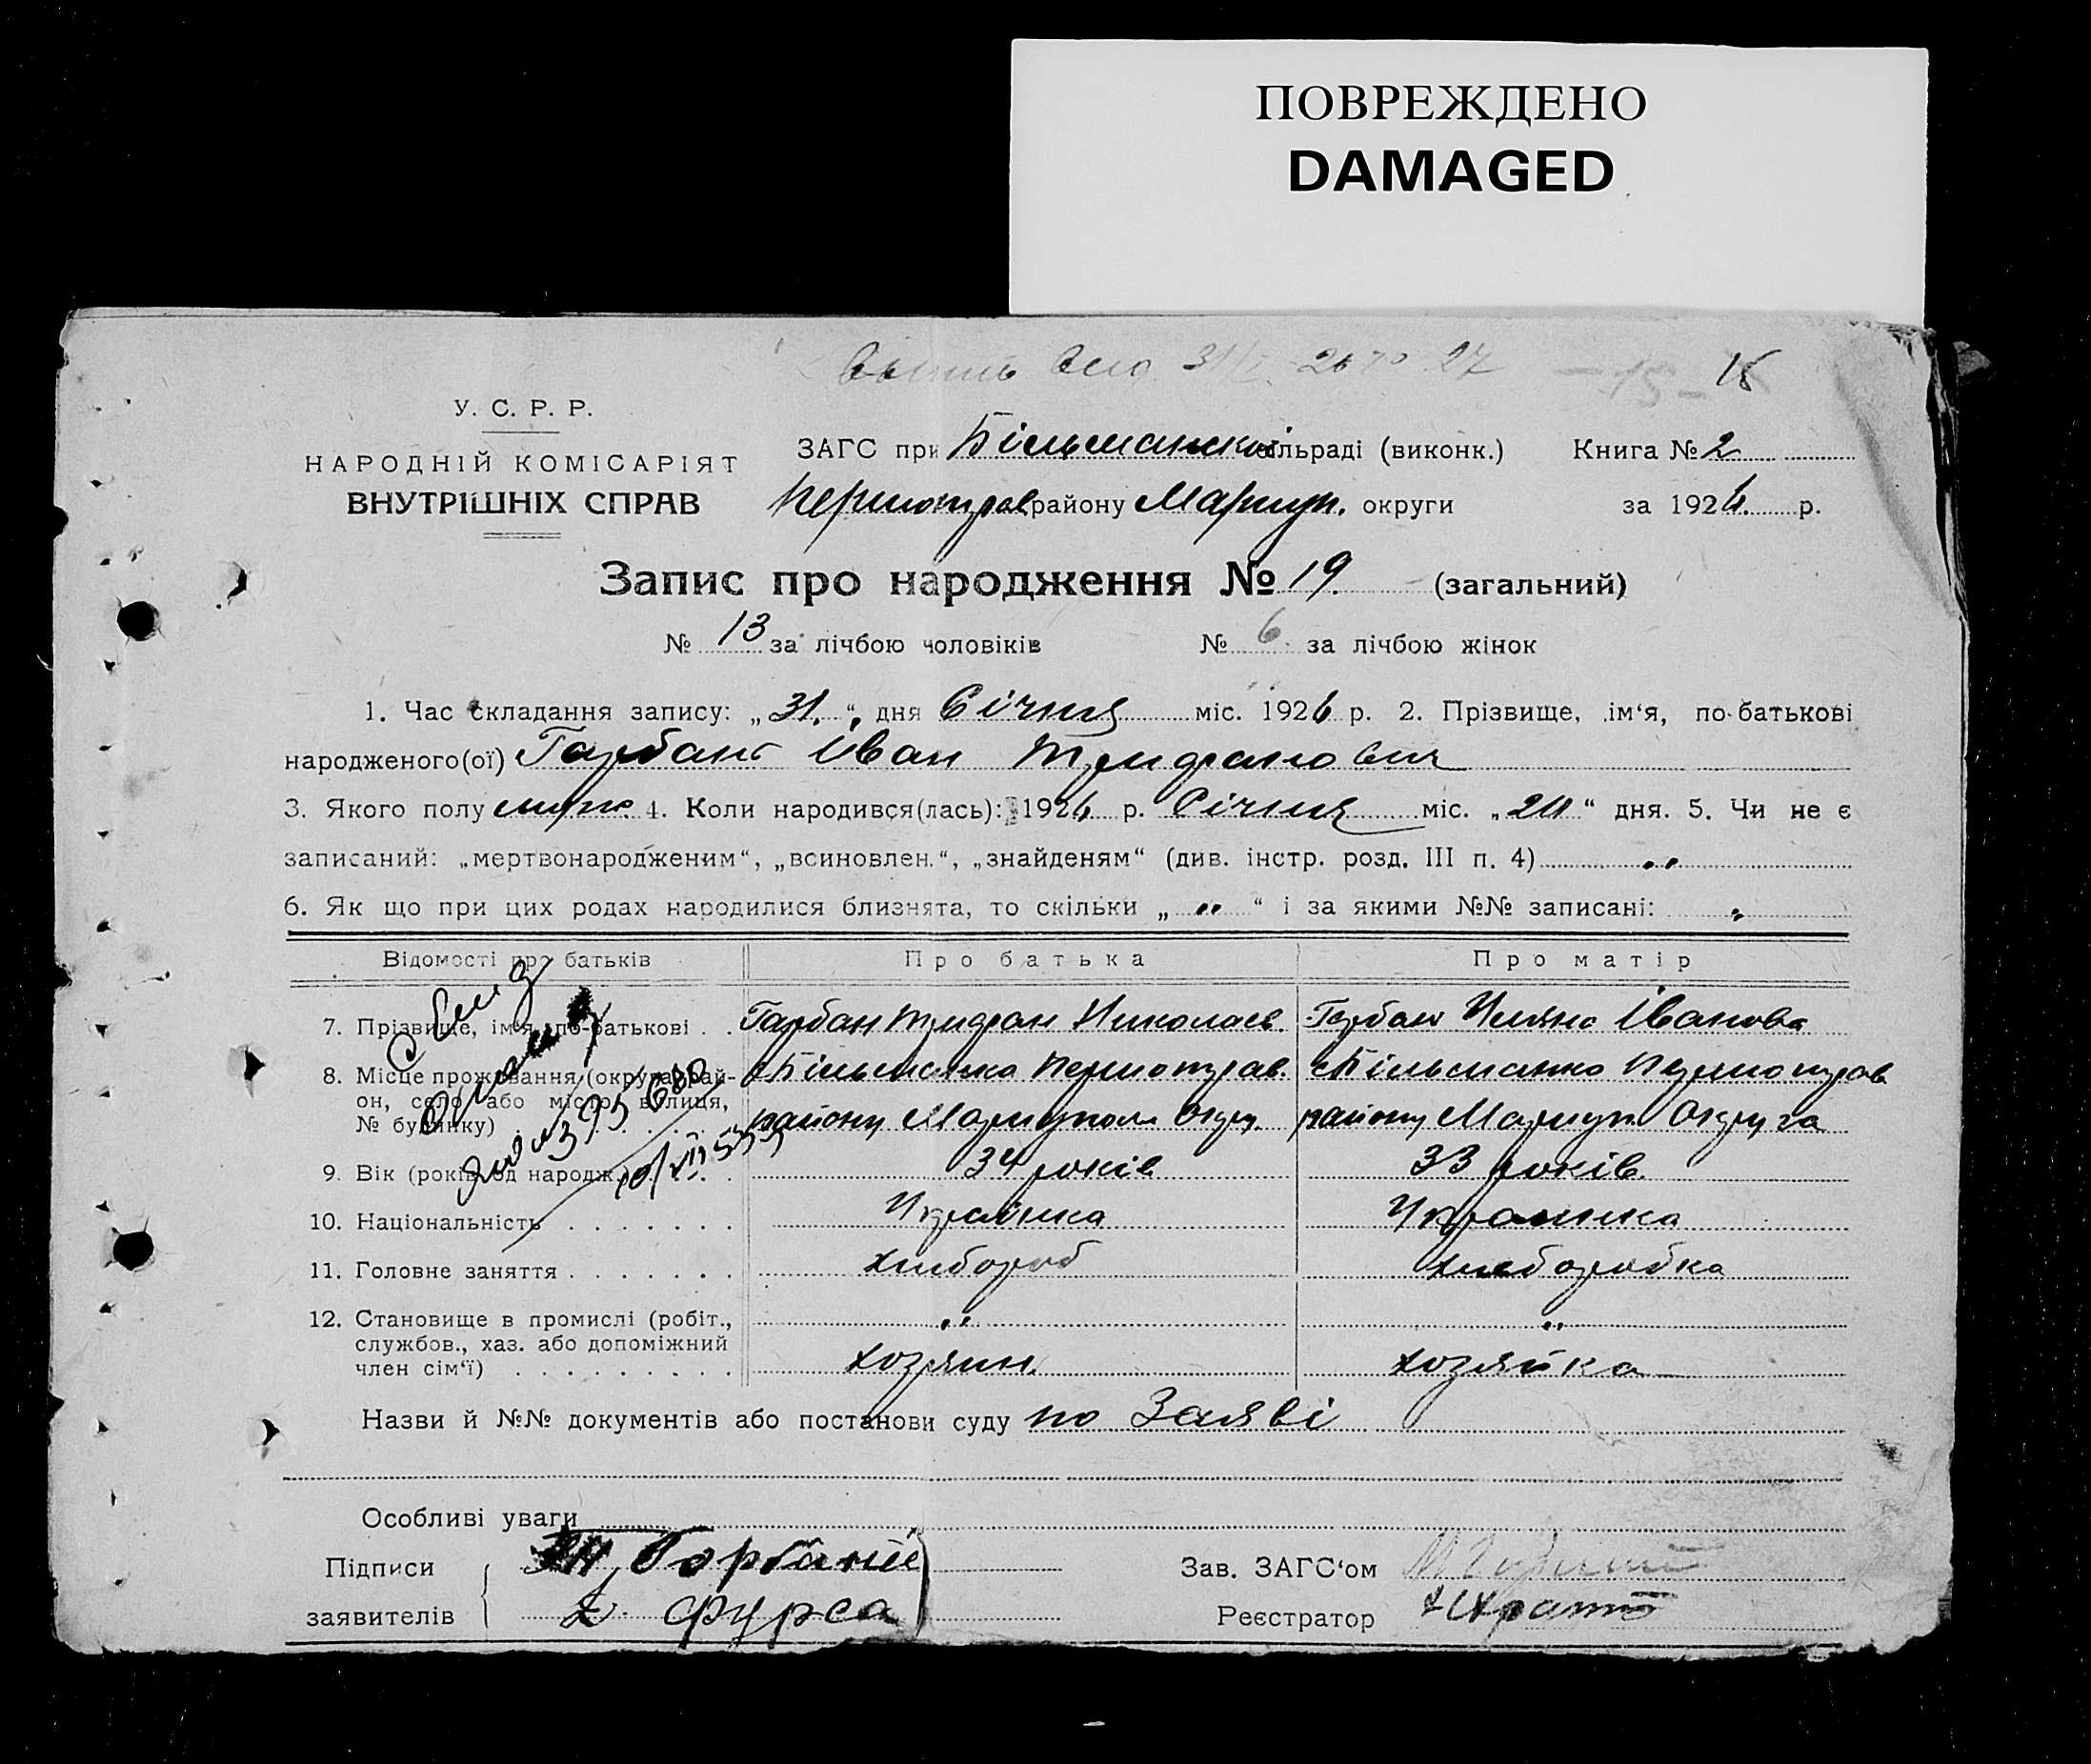 ПОВРЕЖДЕНО
DAMAGED
15
У. С. Р. Р.
НАРОДНІЙ КОМІСАРІЯТ
ВНУТРІШНІХ СПРАВ
ЗАГС при Більманскої сільраді (виконк.) Книга № 2
району Маріуп. округи за 1926 р.
Запис про народження № 19. (загальний)
№ 13 за лічбою чоловіків № 6 за лічбою жінок
1. Час складання запису: „31.“ дня Січня міс. 1926 р. 2. Прізвище, ім‘я, по-батькові
народженого(ої) Гарбань Іван
3. Якого полу муж. 4. Коли народився(лась): 1926 р. Січня міс. „ “ дня. 5. Чи не є
записаний: „мертвонародженим“, „всиновлен.“, „знайденям“ (див. інстр. розд. III п. 4) „
6. Як що при цих родах народилися близнята, то скільки „ „ “ і за якими №№ записані: „
Відомості про батьків Про батька Про матір
7. Прізвище, ім‘я, по-батькові . . Гарбан Николаев. Гарбан Іванова
8. Місце проживання (округа, рай-
он, село або місто, вулиця,
№ будинку) . . . . . . . .
с Більманка району Маріуполь Окру.
с Більманка району Маріуп. Округа
9. Вік (років од народж.) . . . 34 років 33 років.
10. Національність . . . . . . . Українка Українка
11. Головне заняття . . . . . . . хлібороб хлеборобка
12. Становище в промислі (робіт., „ „
службов., хаз. або допоміжний
член сім‘ї) . . . . . . . . . хозяин. хозяйка
Назви й №№ документів або постанови суду по Заяві
Особливі уваги
Підписи Горбаній Зав. ЗАГС‘ом
заявителів Фурса Реєстратор